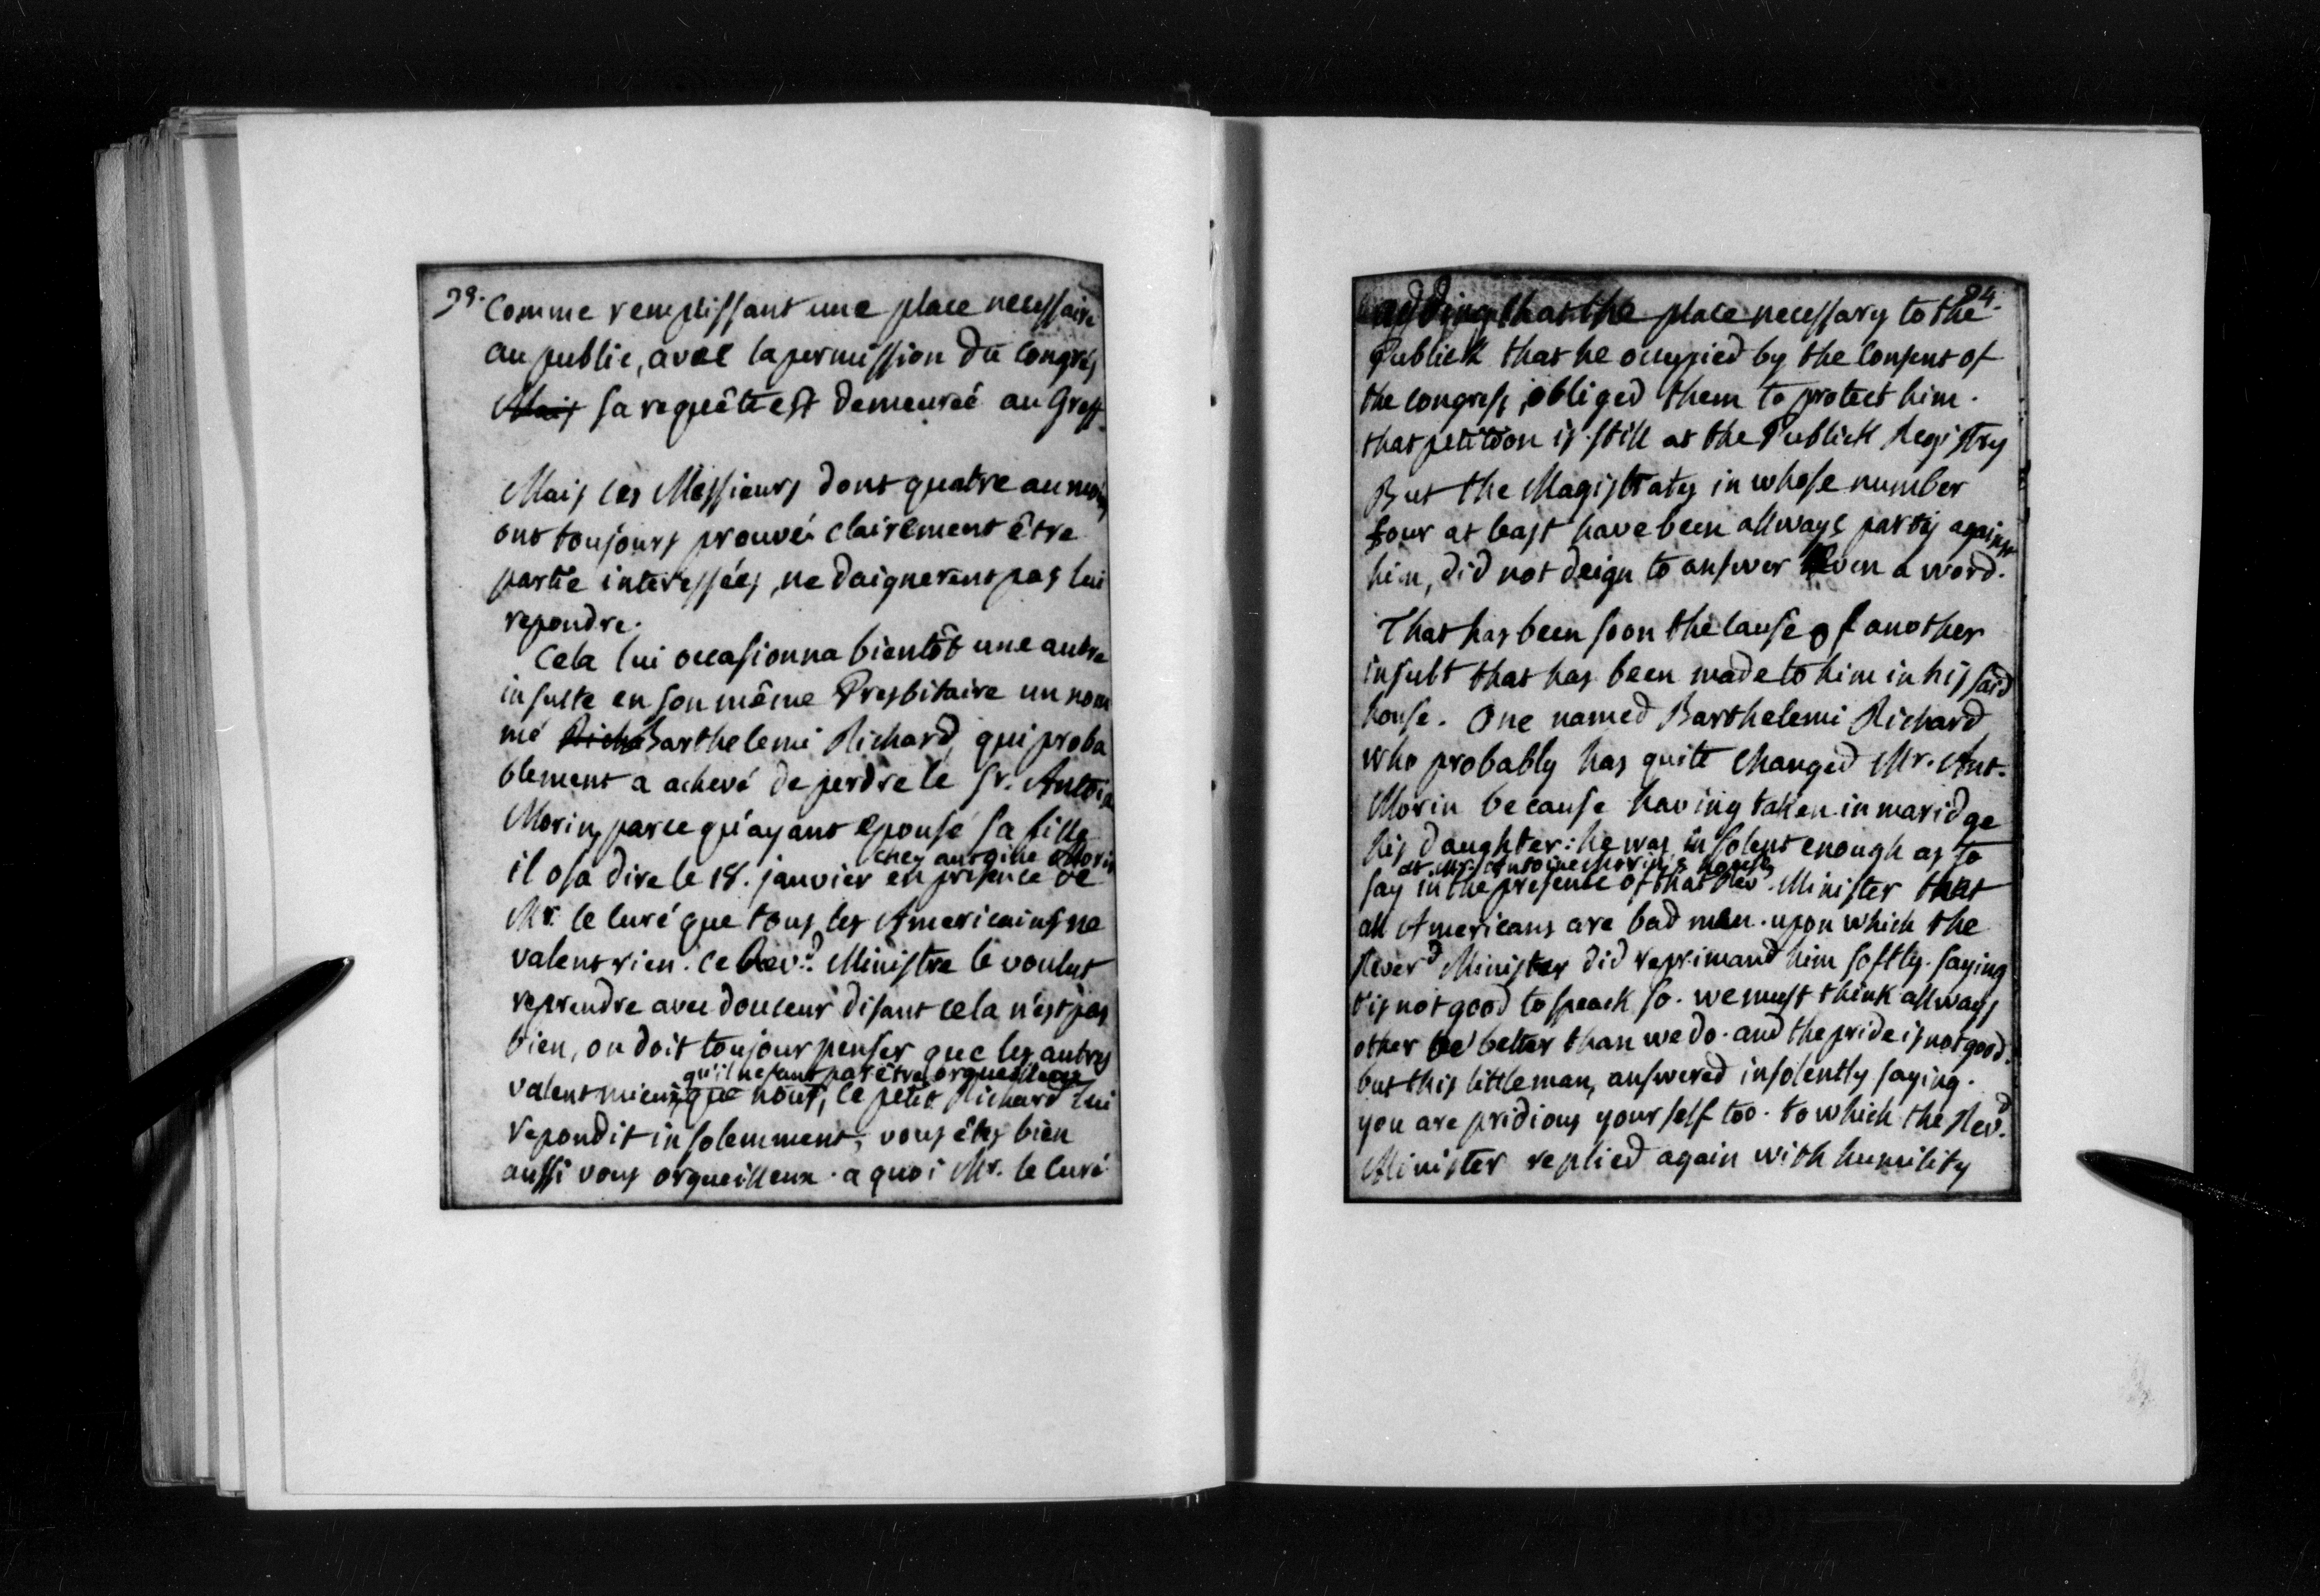 Comme remplissant une place necessaire
au public, avec la permission du Congrés
Mais sa requête est demeureé au Greff
Mais ces Messieurs dont quatre au moins
ont toujours prouvé clairement être
partie interessées, ne daignerent pas lui
repondre.
Cela lui occasionna bientôt une autre
insulte en son même Presbitaire un nom
mé Richa Barthelemi Richard, qui proba
blement a achevé de perdre le Sr. Antoin
Morin, parce qu'ayant epousé sa fille
chez antoine Morin
il osa dire le 18. janvier en presence de
Mr. le Curé que tous les Americains ne
valent rien. ce Revd. Ministre le voulut
reprendre avec douceur disant cela n'est pas
bien, on doit toujour penser que les autres
qu'il ne faut pas être orgueilleux
valent mieux que nous, ce petit Richard lui
repondit insolemment, vous êtes bien
aussi vous orgueilleux. a quoi Mr. le Curé
94.
adding that the place necessary to the
Publick that he occupied by the Consent of
the Congress, obliged them to protect him.
that petition is still at the Publick Registry
But the Magistrates in whose number
four at least have been allways partys against
him, did not deign to answer Even a word.
That has been soon the Cause of another
insult that has been made to him in his said
house. One named Barthelemi Richard
who probably has quite changed Mr. Ant.
Morin because having taken in maridge
his daughter: he was insolent enough as to
at Mr. antoine Morin's house
say in the presence of that Rev. Minister that
all Americans are bad men. upon which the
Reverd Minister did reprimand him softly. saying
t'is not good to speack so. we must think allways
other be better than we do. and the pride is not good.
but this little man, answered insolently saying.
you are pridious your self too. to which the Revd.
Minister replied again with humility